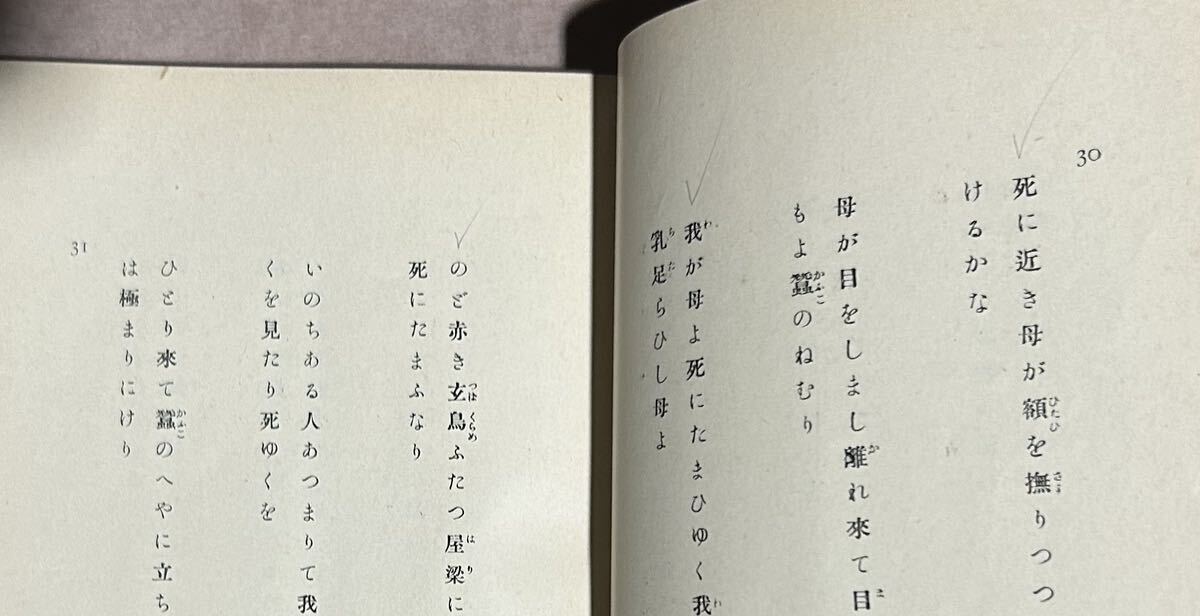 30
死に近き母が額を撫りつつ
ひたひ
さす
けるかな
母が目をしまし離れ來て目
か
ま
もよ蠶のねむり
かふこ
我が母よ死にたまひゆく我
わ
わ
乳足らひし母よ
ちた
のど赤き玄鳥ふたつ屋梁に
つばくらめ
はり
死にたまふなり
いのちある人あつまりて我
くを見たり死ゆくを
ひとり來て蠶のへやに立ち
かふこ
は極まりにけり
31